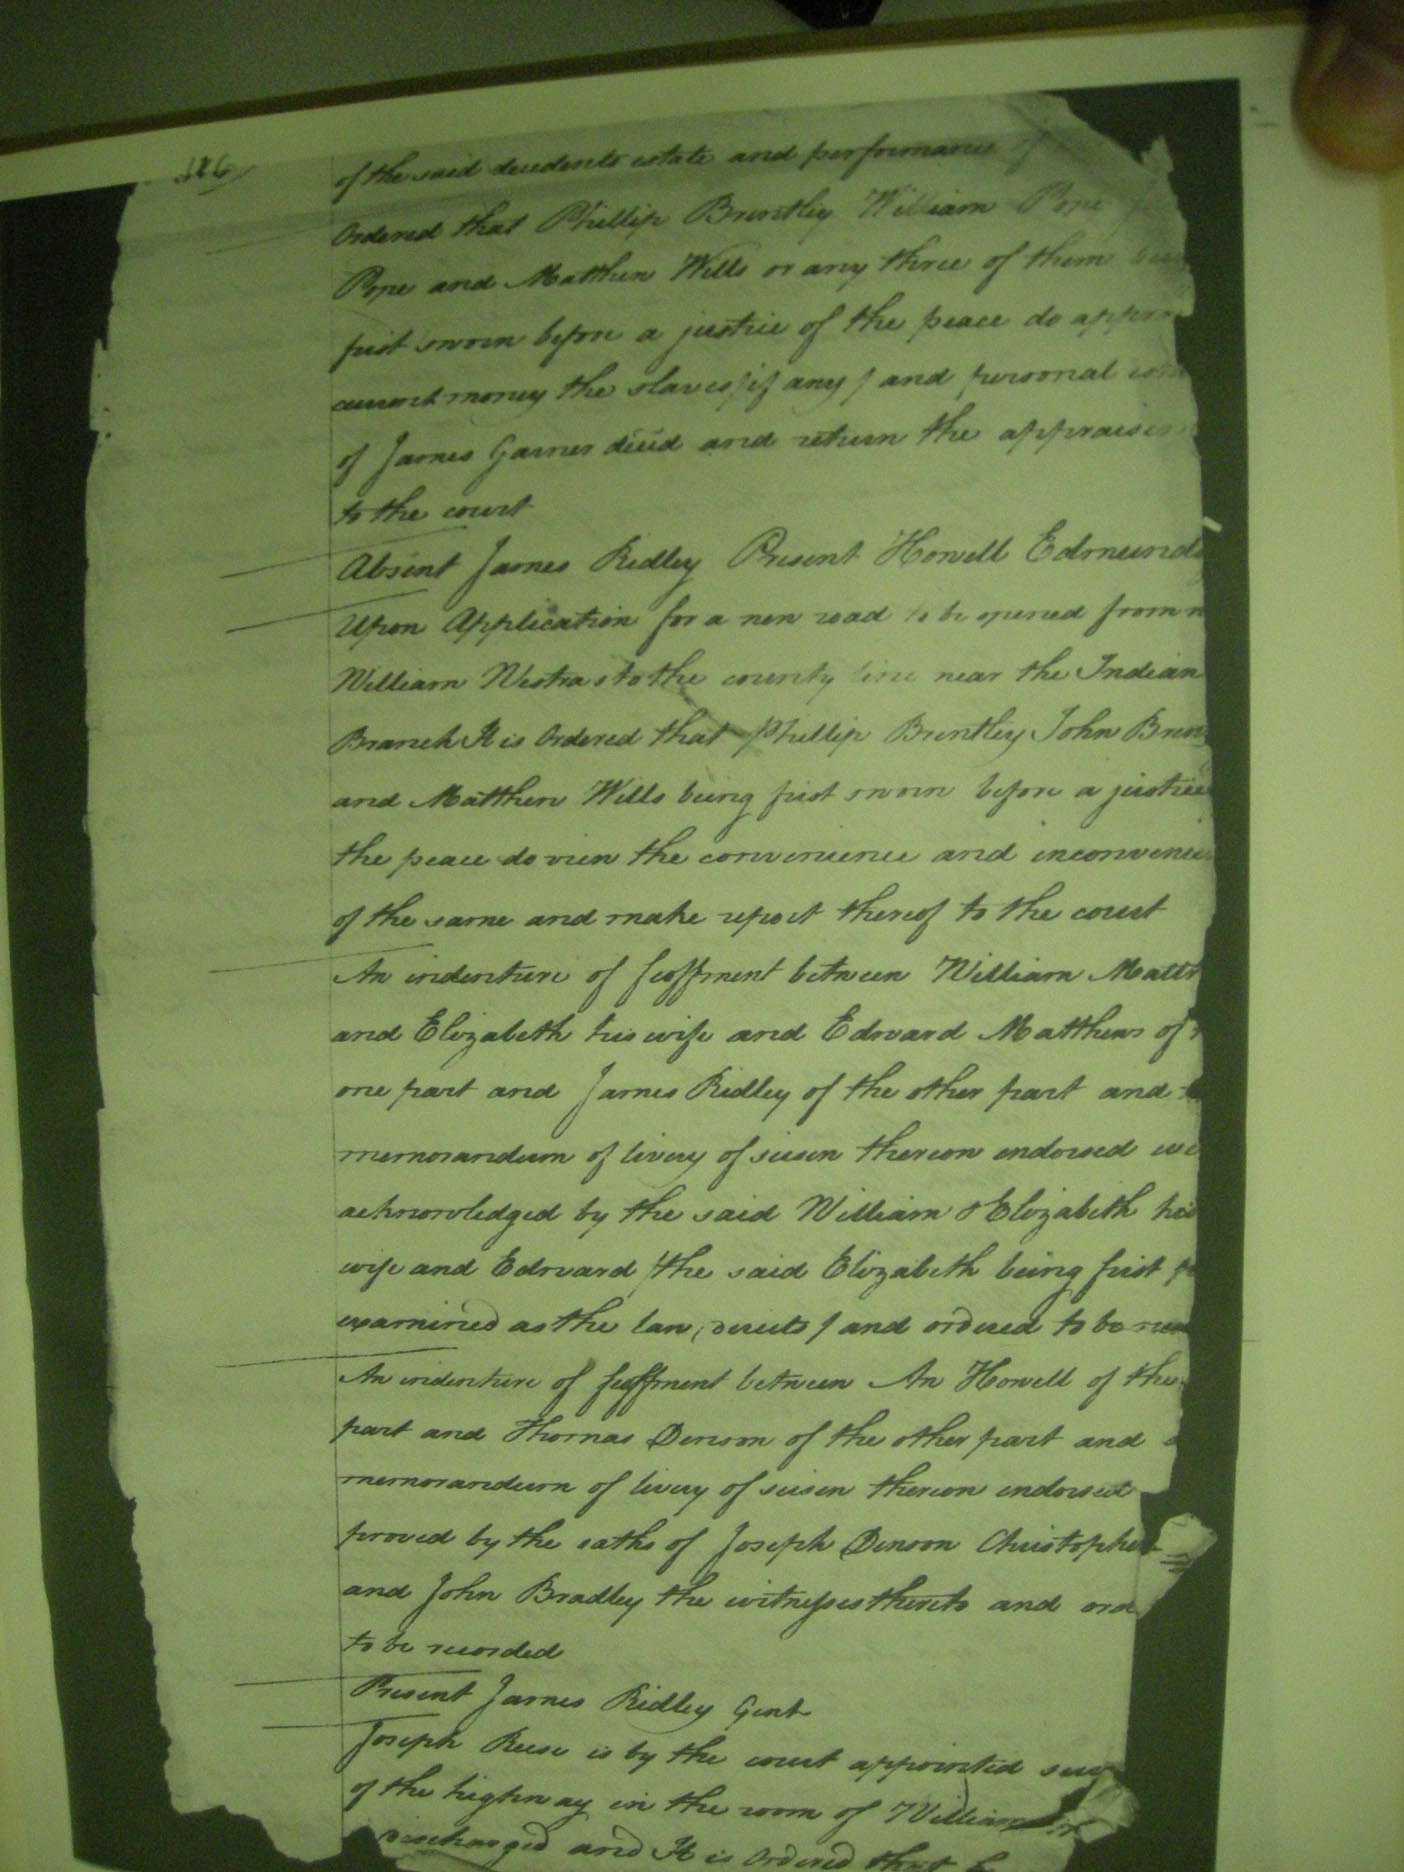 of the said decedents estate and performance of
Ordered that Phillip Brantley William Pope
Pope and Matthew Wills or any three of them
first sworn before a justice of the peace do
current money the slaves (if any) and personal
of James Garner deced and return the
to the court
Absent James Ridley Present Howell Edmunds
Upon Application for a new road to be opened from
William Westras to the county line near the Indian
Branch It is Ordered that Phillip Brantley John
and Matthew Wills being first sworn before a justice
the peace do view the convenience and
of the same and make report thereof to the court
An indenture of feoffment between William
and Elizabeth his wife and Edward Matthews of
one part and James Ridley of the other part and
memorandum of livery of seisen thereon endorsed
acknowledged by the said William & Elizabeth his
wife and Edward (the said Elizabeth being first
examined as the law directs) and ordered to be
An indenture of feoffment between An Howell of the
part and Thomas Denson of the other part and
memorandum of livery of seisen thereon endorsed
proved by the oaths of Joseph Denson Christopher
and John Bradley the witnesses thereto and
to be recorded
Present James Ridley Gent
Joseph Reese is by the court appointed
of the highway in the room of William
discharged and It is Ordered that